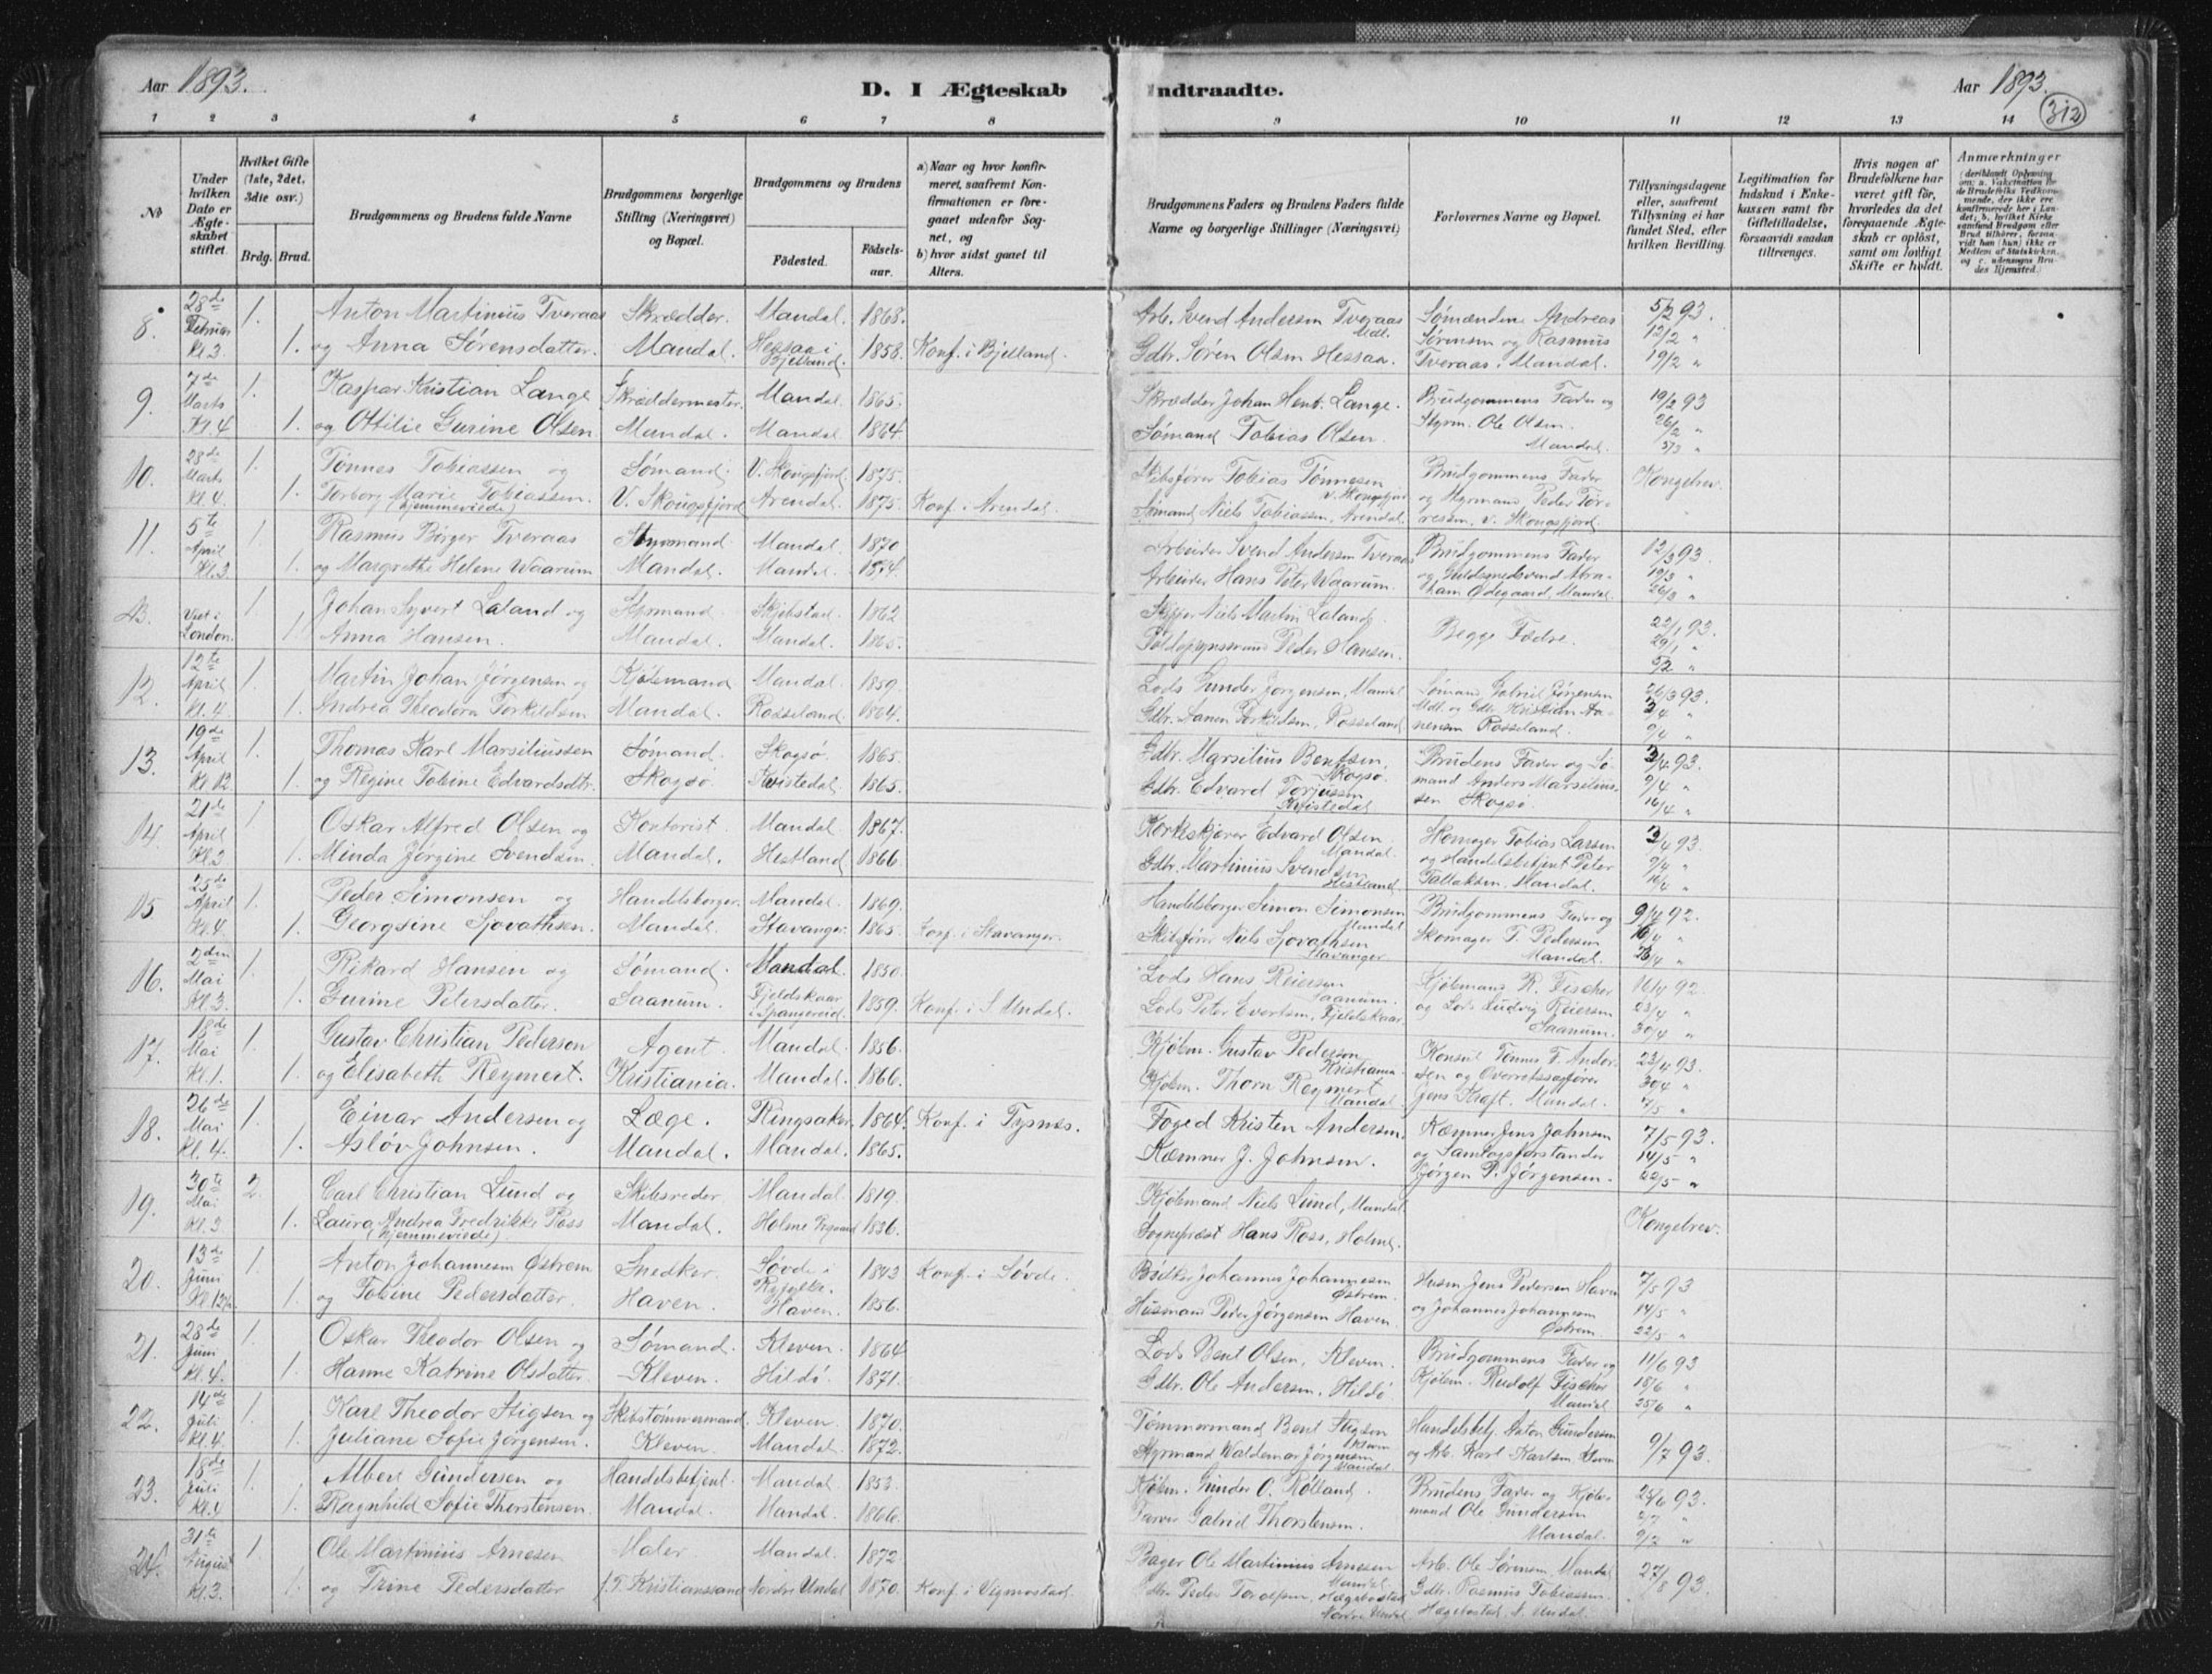 Aar 1893.
D. I Ægteskab indtraadte.
Aar 1893.
312
1 2 3 4 5 6 7 8 9 10 11 12 13 14
№
Under hvilken Dato er Ægteskabet stiftet
Hvilket Gifte (1ste, 2det, 3die osv.)
Brdg. Brud.
Brudgommens og Brudens fulde Navne
Brudgommens borgerlige Stilling (Næringsvei) og Bopæl.
Brudgommens og Brudens
Födested.
Födselsaar.
a) Naar og hvor konfirmeret, saafremt Konfirmationen er foregaaet udenfor Sognet, og
b) hvor sidst gaaet til Alters.
Brudgommens Faders og Brudens Faders fulde Navne og borgerlige Stillinger (Næringsvei)
Forlovernes Navne og Bopæl.
Tillysningsdagene eller, saafremt Tillysning ei har fundet Sted, efter hvilken Bevilling.
Legitimation for Indskud i Enkekassen samt for Giftetilladelse, forsaavidt saadan tiltrænges.
Hvis nogen af Brudefolkene har været gift för, hvorledes da det foregaaende Ægteskab er oplöst, samt om lovligt Skifte er holdt.
Anmærkninger
8. 28de Februar Kl. 3 1. Anton Martinius Tveraas Skrædder. Mandal. 1868. Arb. Svend Andersen Tveraas Mdl. Sømændene Andreas 5/2 93.
1. og Anna Sørensdatter. Mandal. Hessaa i Bjelland. 1858. Konf. i Bjelland. Gdbr. Søren Olsen Hessaa. Sørensen og Rasmus Tveraas, Mandal. 12/2 " 19/2 "
9. 7de Marts Kl. 4 1. Kaspar Kristian Lange Skræddermester. Mandal. 1865. Skrædder Johan Hent. Lange. Brudgommens Fader og 19/2 93
1. og Ottilie Gurine Olsen Mandal. Mandal. 1864. Sømand Tobias Olsen. Styrm. Ole Olsen. Mandal. 26/2 " 5/3 "
10. 28de Marts Kl. 4. 1. Tønnes Tobiassen og Sømand. V. Skougsfjord. 1875. Skibsfører Tobias Tønnesen V. Skougsfjord Brudgommens Fader Kongebrev.
1. Torborg Marie Tobiassen. (hjemmeviede) V. Skougsfjord Arendal. 1875. Konf. i Arendal. Sømand Niels Tobiassen, Arendal. og Styrmand Peder V. Skougsfjord.
11. 5te April Kl. 3 1. Rasmus Birger Tveraas Styrmand. Mandal. 1870 Arbeider Svend Andersen Tveraas Brudgommens Fader 12/3 93.
1. og Margrethe Helene Waarum Mandal. Mandal. 1874. Arbeider Hans Peter Waarum. og Guldsmedsvend Abraham Ødegaard, Mandal. 19/3 " 26/3 "
Viet i London. 1. Johan Syvert Laland og Styrmand. Mandal. 1862. Skipper Niels Martin Laland. Begge Fædre. 22/1 93.
1. Anna Hansen. Mandal. Mandal. Peder Hansen. 29/1 " 5/2 "
12. 12te April Kl. 4. 1. Martin Johan Jørgensen og Kjøbmand Mandal. 1859. Lods Gunder Jørgensen, Mandal Sømand Gabriel Jørgensen 26/3 93.
1. Andrea Theodora Torkildsen Mandal. Rosseland. 1864. Gdbr. Torkildsen, Rosseland Mdl. og Gdbr. Kristian Rosseland. 3/4 " 9/4 "
13. 19de April Kl. 12 1. Thomas Karl Marsiliussen Sømand. Skogsø. 1865. Gdbr. Marsilius Bentsen, Skogsø. Brudens Fader og Sømand 3/4 93.
1. og Regine Tobine Edvardsdtr. Skogsø. Kvistedal. 1865. Gdbr. Edvard Torjussen Kvistedal Anders Marsiliussen Skogsø. 9/4 " 16/4 "
14. 21de April Kl. 3 1. Oskar Alfred Olsen og Kontorist. Mandal. 1867. Edvard Olsen Mandal. Skomager Tobias Larsen 3/4 93.
1. Minda Jørgine Svendsen. Mandal. Hestland 1866. Gdbr. Martinius Svendsen Hestland. og Handelsbetjent Peter Tallaksen. Mandal. 9/4 " 16/4 "
15 25de April Kl. 4. 1. Peder Simonsen og Handelsborger. Mandal. 1869. Handelsborger Simon Simonsen Mandal Brudgommens Fader og 9/4 92.
1. Georgsine Sjovathsen. Mandal. Stavanger. 1865. Konf. i Stavanger. Skibsfører Niels Sjovathsen Stavanger Skomager T. Pedersen Mandal. 16/4 " 23/4 "
16. 2den Mai Kl. 3. 1. Rikard Hansen og Sømand. Mandal. 1850. Lods Hans Reiersen Saanum. Kjøbmand R. Fischer 16/4 92.
1. Gurine Petersdatter. Saanum. Fjeldskaar i Spangereid. 1859. Konf. i S. Undal. Lods Peter Evertsen, Fjeldskaar. og Lods Ludvig Reiersen Saanum. 23/4 " 30/4 "
17. 18de Mai Kl. 1. 1. Gustav Christian Pedersen Agent. Mandal. 1856. Kjøbm. Gustav Pedersen Kristiania. Konsul Tønnes F. Andersen 23/4 93.
1. og Elisabeth Reymert. Kristiania. Mandal. 1866. Kjøbm. Thorn Reymert Mandal. og Overretssagfører Jens Kraft. Mandal. 30/4 " 7/5 "
18. 26de Mai Kl. 4. 1. Einar Andersen og Læge. Ringsaker. 1864. Konf. i Tysnes. Foged Kristen Andersen. Kæmner Jens Johnsen 7/5 93.
1. Asløv Johnsen. Mandal. Mandal. 1865. Kæmner J. Johnsen. og Samlagsforstander Jørgen P. Jørgensen. 14/5 " 22/5 "
19. 30te Mai Kl. 3 2. Carl Christian Lund og Skibsreder. Mandal. 1819. Kjøbmand Niels Lund, Mandal.
1. Laura Andrea Fredrikke Ross (hjemmeviede) Mandal. Holme 1836. Sogneprest Hans Ross, Holme. Kongebrev.
20. 13de Juni Kl 12½ 1. Anton Johannesen Østrem Snedker. Søvde i Ryfylke. 1843 Konf. i Søvde. Johannes Johannesen Østrem. Husm. Jens Pedersen Haven 7/5 93
1. og Tobine Pedersdatter. Haven. Haven. 1856. Husmand Peder Jørgensen Haven og Johannes Johannesen Østrem 14/5 " 22/5 "
21. 28de Juni Kl. 4. 1. Oskar Theodor Olsen og Sømand. Kleven. 1864 Lods Bent Olsen, Kleven. Brudgommens Fader og 11/6 93
1. Hanne Katrine Olsdatter. Kleven. Hildø. 1871. Gdbr. Ole Andersen, Hildø Kjøbm. Rudolf Fischer Mandal 18/6 " 25/6 "
22. 14de Juli Kl. 4. 1. Karl Theodor Stigsen og Skibstømmermand. Kleven. 1870. Tømmermand Bent Stigsen Kleven Handelsbetj. Anton Gundersen
1. Juliane Sofie Jørgensen. Kleven. Mandal. 1872. Styrmand Waldemar Jørgensen Mandal. og Arb. Karl Karlsen Kleven 9/7 93.
23. 18de Juli Kl. 4 1. Albert Gundersen og Handelsbetjent. Mandal 1853. Kjøbm. Gunder O. Røiland. Brudens Fader og Kjøbmand 25/6 93.
1. Ragnhild Sofie Thorstensen. Mandal. Mandal. 1866. Farver Gabriel Thorstensen. Ole Gundersen Mandal. 2/7 " 9/7 "
24. 31te August Kl. 3. 1. Ole Martinius Arnesen Maler Mandal. 1872 Bager Ole Martinius Arnesen Mandal. Arb. Ole Sørensen, Mandal 27/8 93.
1. og Trine Pedersdatter f.T. Kristianssand Nordre Undal 1870. Konf. i Vigmostad. Gdbr. Peder Hægebostad Nordre Undal Gdbr. Rasmus Tobiassen. Hægebostad, N. Undal.